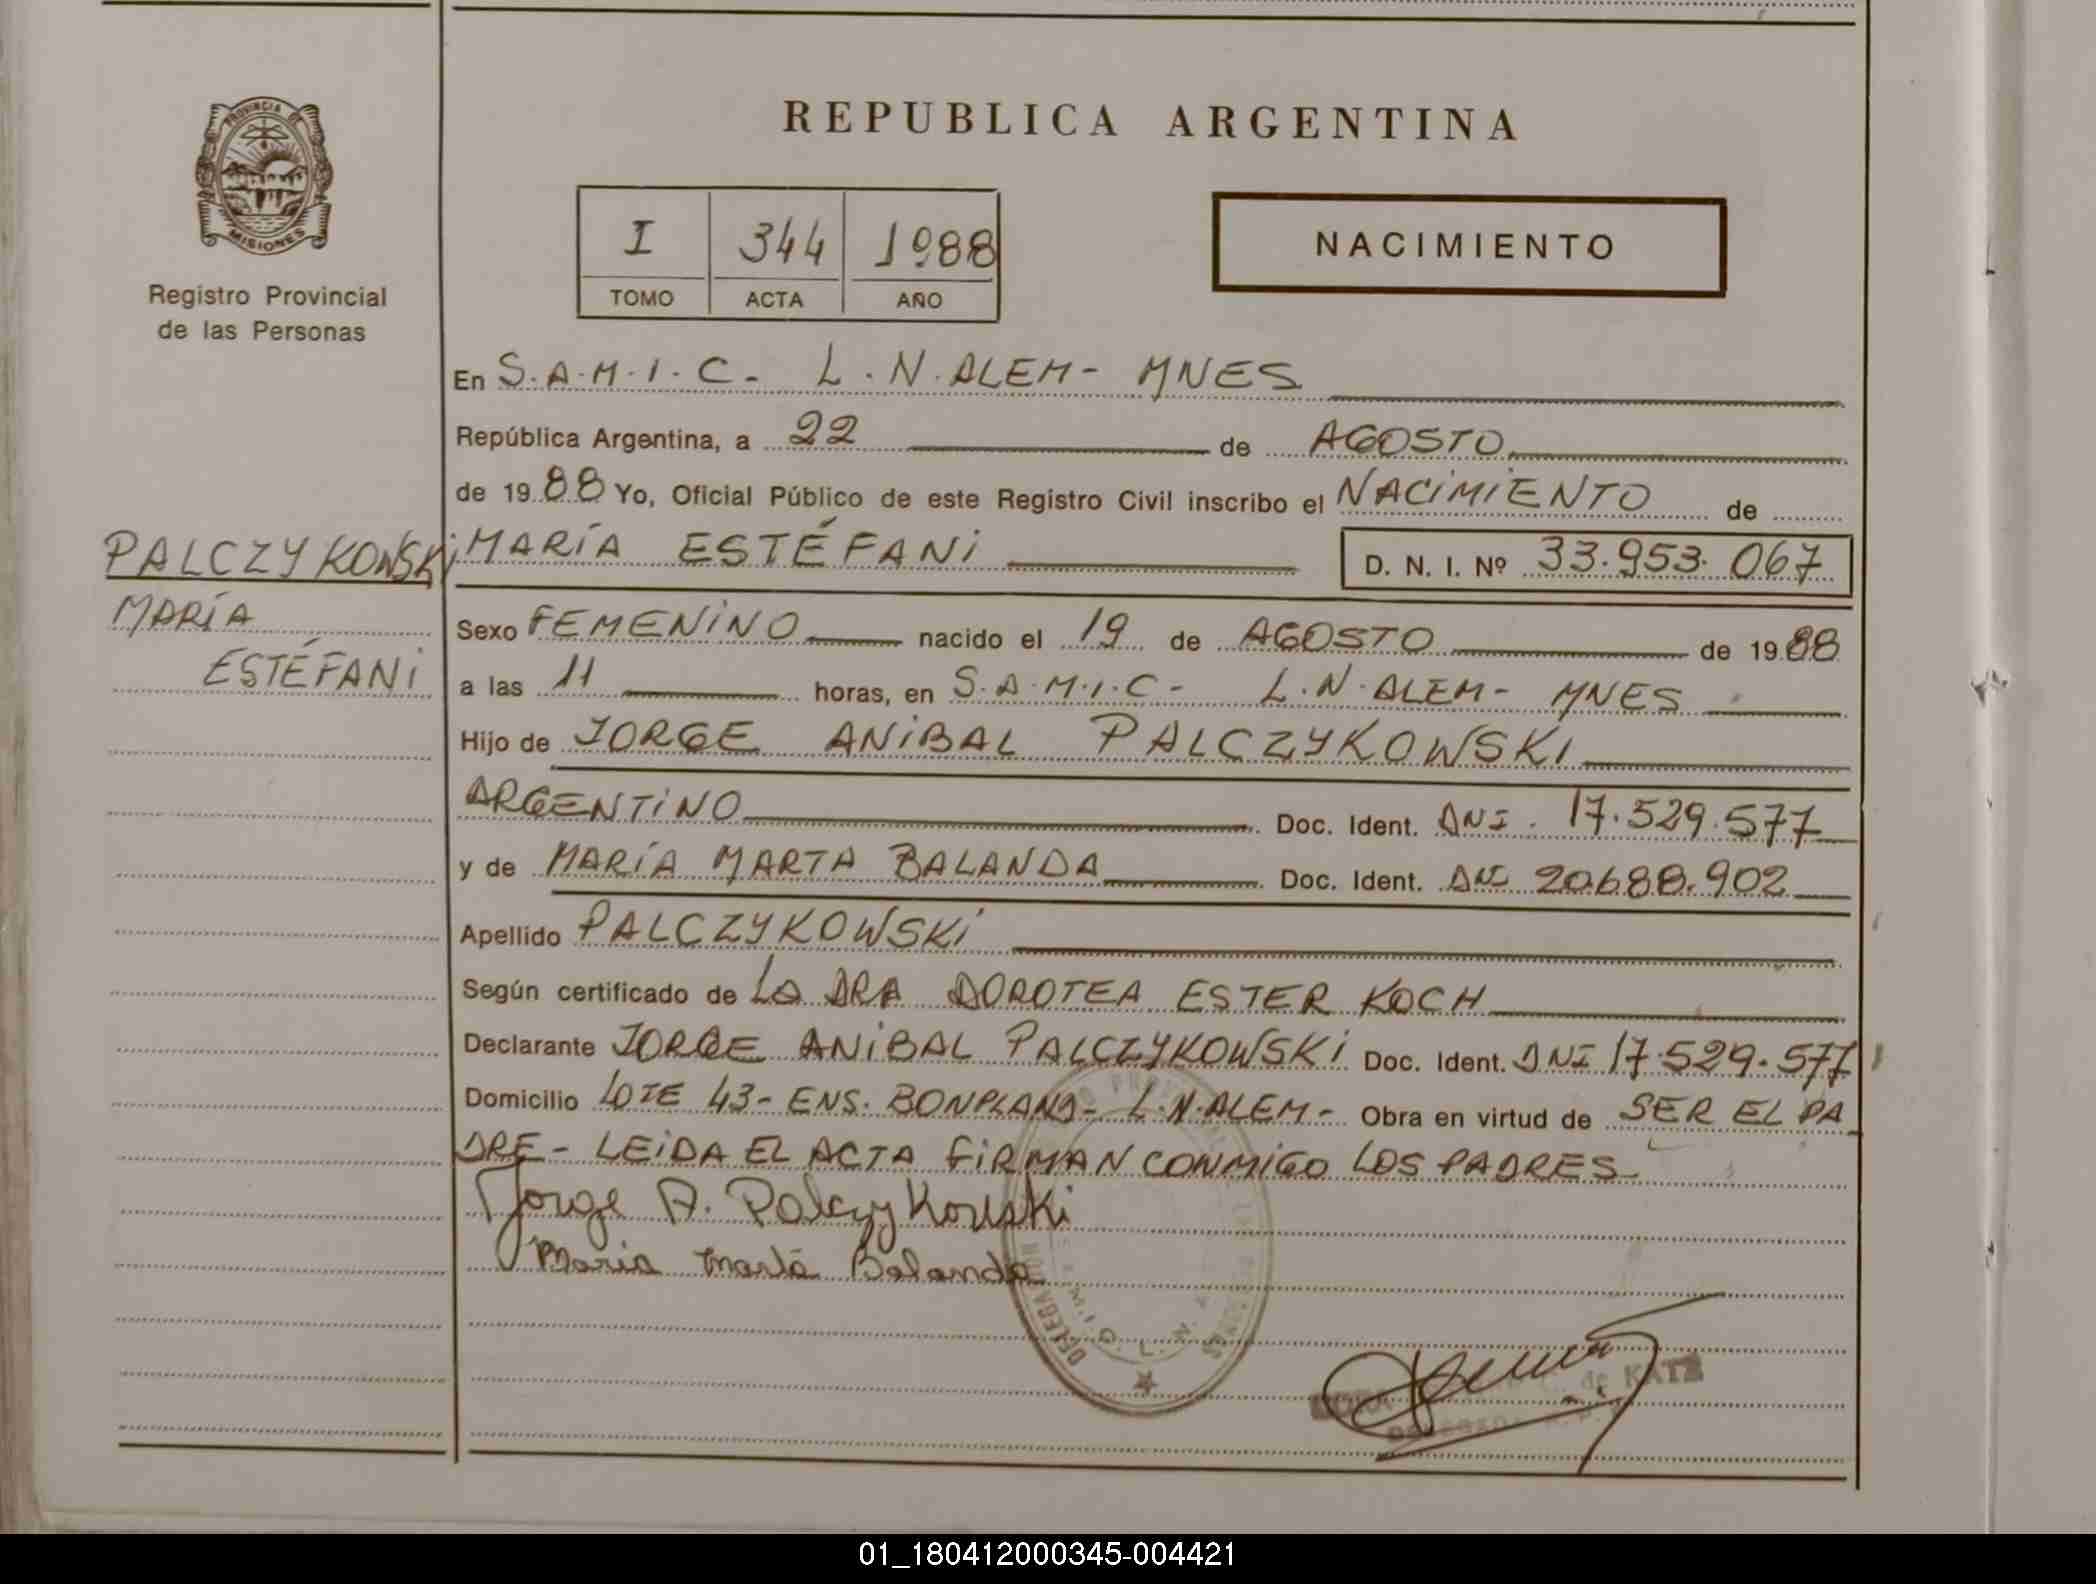 REPUBLICA ARGENTINA
PROVINCIA DE
MISIONES
Registro Provincial
de las Personas
I 344 1988
TOMO ACTA AÑO
NACIMIENTO
En S.A.M.I.C- L.N.ALEM- MNES
República Argentina, a 22 de AGOSTO
de 1988 Yo, Oficial Público de este Registro Civil inscribo el NACIMIENTO de
PALCZYKOWSKI
MARÍA
ESTÉFANI
MARÍA ESTÉFANI D. N. I. Nº 33.953.067
Sexo FEMENINO nacido el 19 de AGOSTO de 1988
a las 11 horas, en S.A.M.I.C- L.N.ALEM- MNES
Hijo de JORGE ANIBAL PALCZYKOWSKI
ARGENTINO Doc. Ident. DNI. 17.529.577
y de MARÍA MARTA BALANDA Doc. Ident. DNI 20.688.902
Apellido PALCZYKOWSKI
Según certificado de LA DRA DOROTEA ESTER KOCH
Declarante JORGE ANIBAL PALCZYKOWSKI Doc. Ident. DNI 17.529.577
Domicilio LOTE 43- ENS. BONPLAND- L.N.ALEM- Obra en virtud de SER EL PA
DRE- LEIDA EL ACTA FIRMAN CONMIGO LOS PADRES
Jorge A. Palczykowski
Maria Marta Balanda
de KATZ
01_180412000345-004421